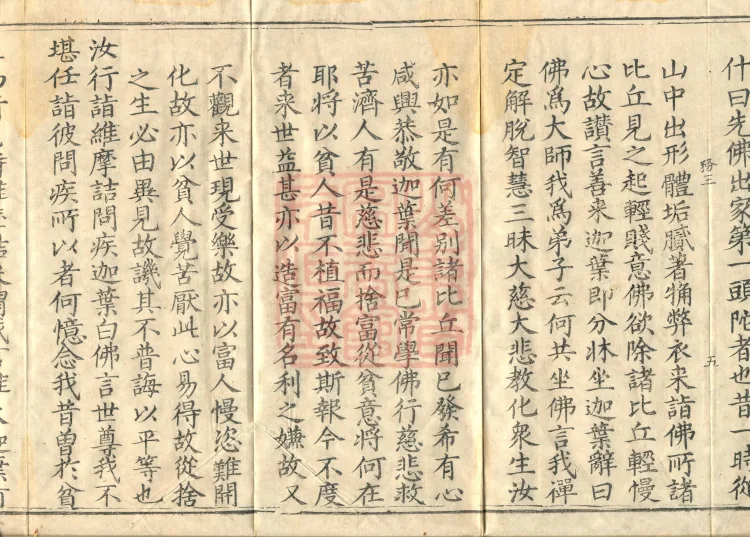 什曰先佛出家第一頭陀者也昔一時從
山中出形體垢膩著牰弊衣来詣佛所諸
比丘見之起輕賤意佛欲除諸比丘輕慢
心故讃言善来迦葉即分牀坐迦葉辭曰
佛爲大師我爲弟子云何共坐佛言我禪
定解脫智慧三昧大慈大悲教化衆生汝
亦如是有何差别諸比丘聞已發希有心
咸興恭敬迦葉聞是已常學佛行慈悲救
苦濟人有是慈悲而捨富從貧意將何在
耶将以貧人昔不植福故致斯報今不度
者来世益甚亦以造富有名利之嫌故又
不觀来世現受樂故亦以富人慢恣難開
化故亦以貧人覺苦厭此心易得故從捨
之生必由異見故譏其不普誨以平等也
汝行詣維摩詰問疾迦葉白佛言世尊我不
堪任詣彼問疾所以者何憶念我昔曽於貧
五